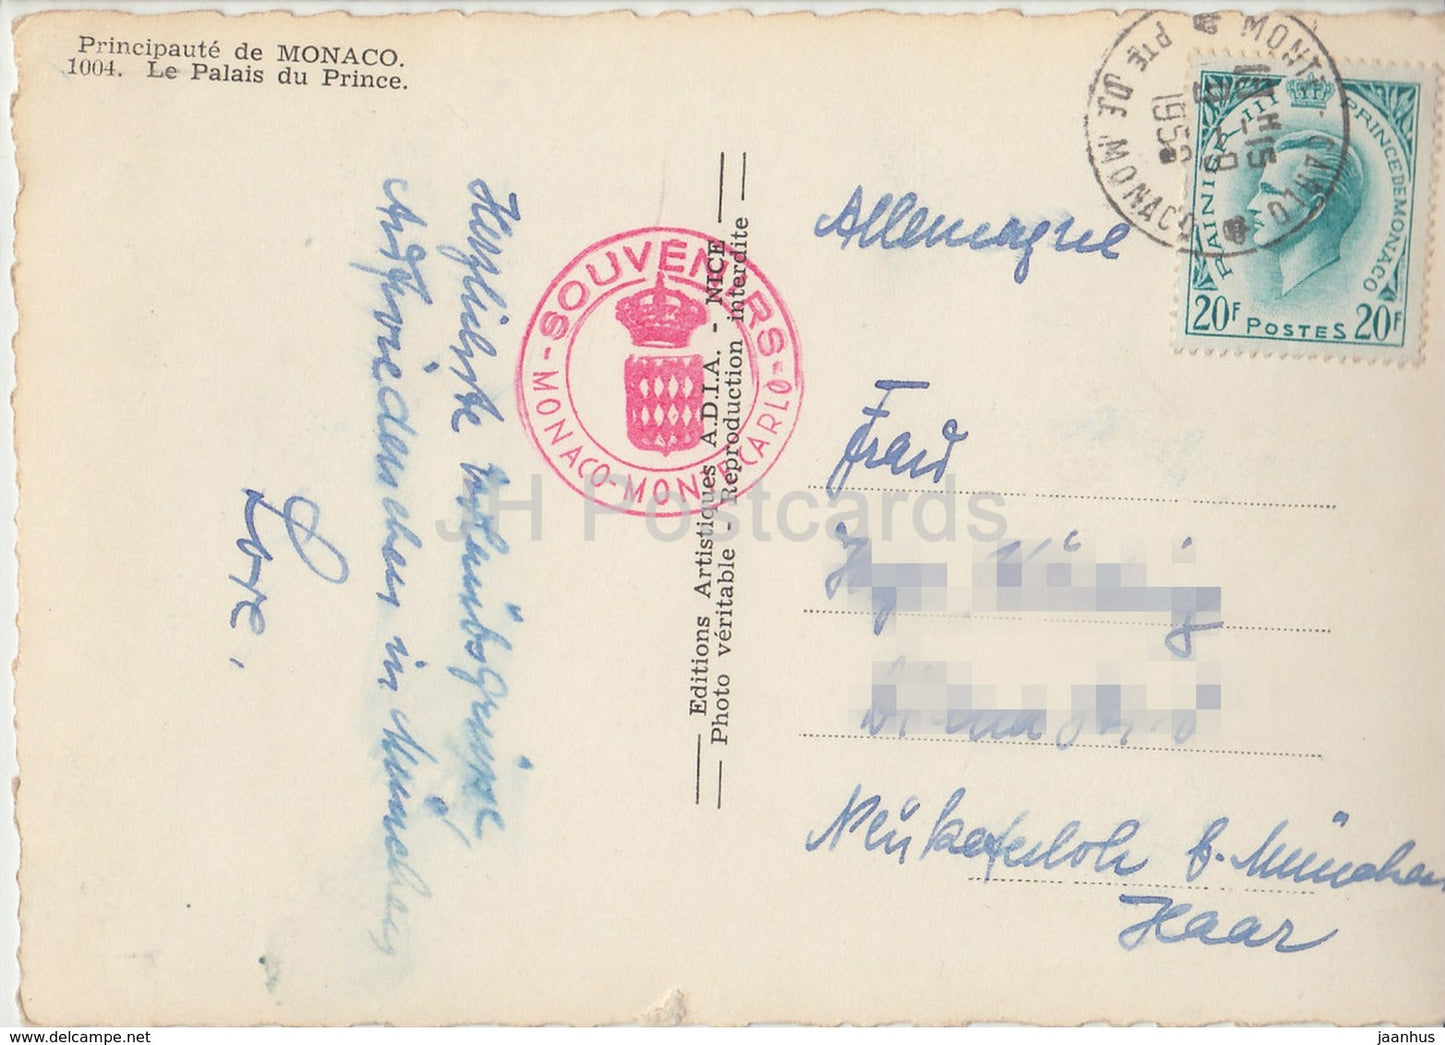 Principauté de MONACO.
1004. Le Palais du Prince.
Herzlichste Urlaubsgrüsse,
Aufwiedersehen in München
Lore.
SOUVENIRS
MONACO-MONTE CARLO
Editions Artistiques A.D.I.A. - NICE
Photo véritable - Reproduction interdite
MONTE-CARLO
PTE DE MONACO
RAINIER III PRINCE DE MONACO
20F POSTES 20F
Allemagne
Frau
Neukeferloh b. München
Haar
JH Postcards
delcampe.net
jaanhus